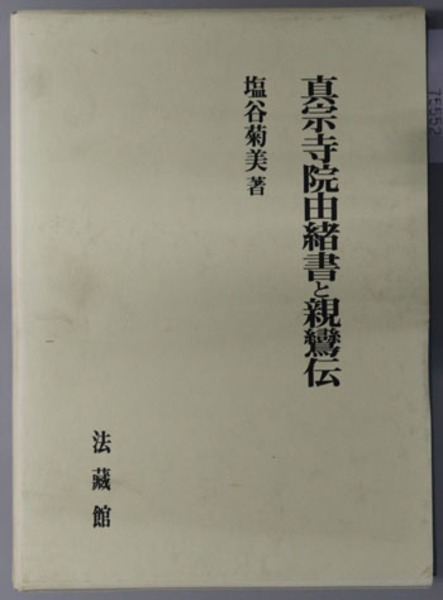 真宗寺院由緒書と親鸞伝
塩谷菊美著
法藏館